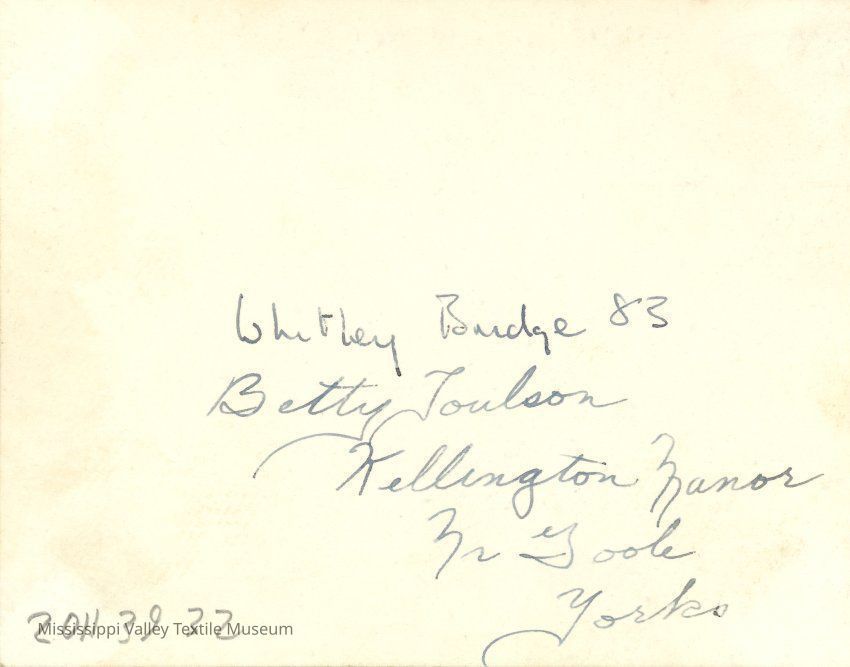 Whitley Bridge 83
Betty Toulson
Kellington Manor
Nr Goole
Yorks
2011 39 32
Mississippi Valley Textile Museum